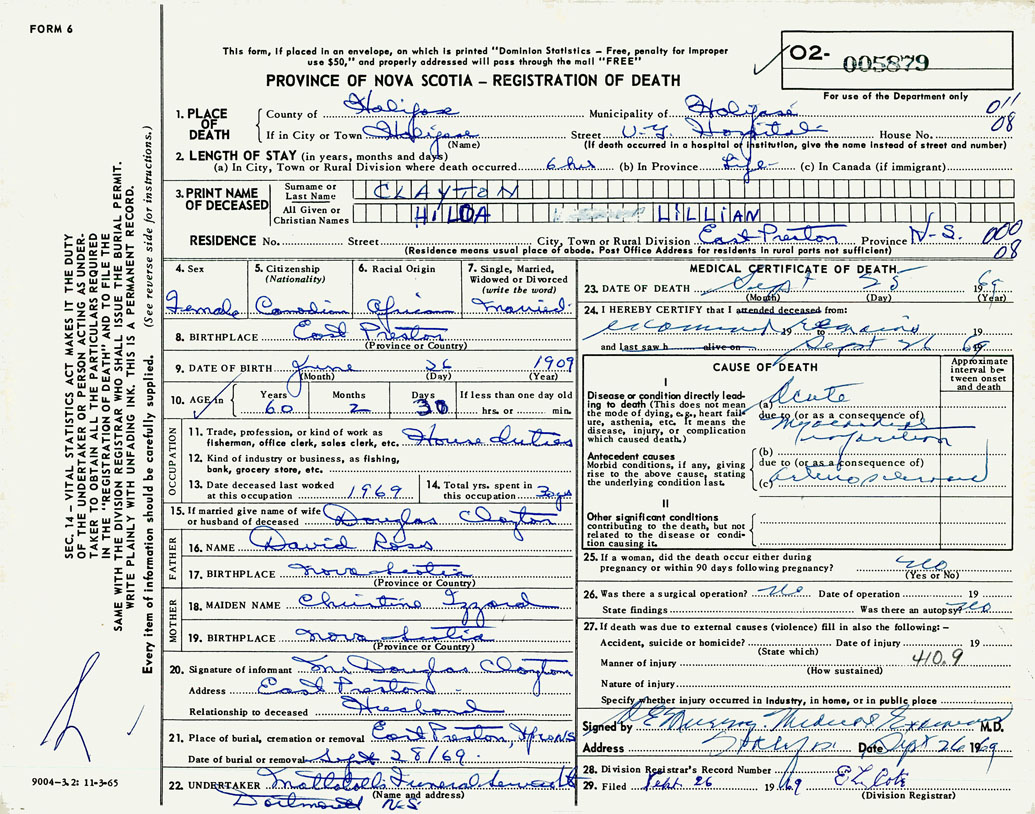 FORM 6
This form, if placed in an envelope, on which is printed "Dominion Statistics – Free, penalty for improper
use $50," and properly addressed will pass through the mail "FREE"
PROVINCE OF NOVA SCOTIA – REGISTRATION OF DEATH
O2- 005879
For use of the Department only
011
08
1. PLACE OF DEATH
County of Halifax Municipality of Halifax
If in City or Town Halifax Street V-G Hospital House No.
(Name) (If death occurred in a hospital or institution, give the name instead of street and number)
2. LENGTH OF STAY (in years, months and days)
(a) In City, Town or Rural Division where death occurred 6 hrs (b) In Province Life (c) In Canada (if immigrant)
3. PRINT NAME OF DECEASED
Surname or Last Name CLAYTON
All Given or Christian Names HILDA LILLIAN
RESIDENCE No. Street City, Town or Rural Division East Preston Province N-S.
000
08
(Residence means usual place of abode. Post Office Address for residents in rural parts not sufficient)
4. Sex
Female
5. Citizenship (Nationality)
Canadian
6. Racial Origin
African
7. Single, Married, Widowed or Divorced (write the word)
Married
8. BIRTHPLACE East Preston
(Province or Country)
9. DATE OF BIRTH June 26 1909
(Month) (Day) (Year)
10. AGE in Years 60 Months 2 Days 30 If less than one day old hrs. or min.
OCCUPATION
11. Trade, profession, or kind of work as
fisherman, office clerk, sales clerk, etc. House duties
12. Kind of industry or business, as fishing,
bank, grocery store, etc.
13. Date deceased last worked
at this occupation 1969
14. Total yrs. spent in
this occupation 30 yrs
15. If married give name of wife
or husband of deceased Douglas Clayton
FATHER
16. NAME David Ross
17. BIRTHPLACE Nova Scotia
(Province or Country)
MOTHER
18. MAIDEN NAME Christine Izzard
19. BIRTHPLACE Nova Scotia
(Province or Country)
20. Signature of informant Mr Douglas Clayton
Address East Preston
Relationship to deceased Husband
21. Place of burial, cremation or removal East Preston,
Date of burial or removal Sept 28/69.
22. UNDERTAKER Mattatall's Funeral
(Name and address)
Dartmouth NS
MEDICAL CERTIFICATE OF DEATH
23. DATE OF DEATH Sept 25 1969
(Month) (Day) (Year)
24. I HEREBY CERTIFY that I attended deceased from:
examined 19 to remains 19
and last saw h alive on Sept 26 69
CAUSE OF DEATH
Approximate interval between onset and death
I
Disease or condition directly leading to death (This does not mean
the mode of dying, e.g., heart failure, asthenia, etc. It means the
disease, injury, or complication
which caused death.)
(a) Acute
due to (or as a consequence of)
Myocardial
Infarction
Antecedent causes
Morbid conditions, if any, giving
rise to the above cause, stating
the underlying condition last.
(b)
due to (or as a consequence of)
(c) arteriosclerosis
II
Other significant conditions
contributing to the death, but not
related to the disease or condition causing it.
25. If a woman, did the death occur either during
pregnancy or within 90 days following pregnancy? No
(Yes or No)
26. Was there a surgical operation? No Date of operation 19
State findings Was there an autopsy? No
27. If death was due to external causes (violence) fill in also the following: –
Accident, suicide or homicide? Date of injury 19
(State which)
Manner of injury 410.9
(How sustained)
Nature of injury
Specify whether injury occurred in industry, in home, or in public place
Signed by Medical Examiner M.D.
Address Halifax Date Sept 26 1969
28. Division Registrar's Record Number
29. Filed Sept. 26 1969
(Division Registrar)
SEC. 14 – VITAL STATISTICS ACT MAKES IT THE DUTY
OF THE UNDERTAKER OR PERSON ACTING AS UNDER-
TAKER TO OBTAIN ALL THE PARTICULARS REQUIRED
IN THE "REGISTRATION OF DEATH" AND TO FILE THE
SAME WITH THE DIVISION REGISTRAR WHO SHALL ISSUE THE BURIAL PERMIT.
WRITE PLAINLY WITH UNFADING INK. THIS IS A PERMANENT RECORD.
Every item of information should be carefully supplied. (See reverse side for instructions.)
9004–3.2: 11-3-65